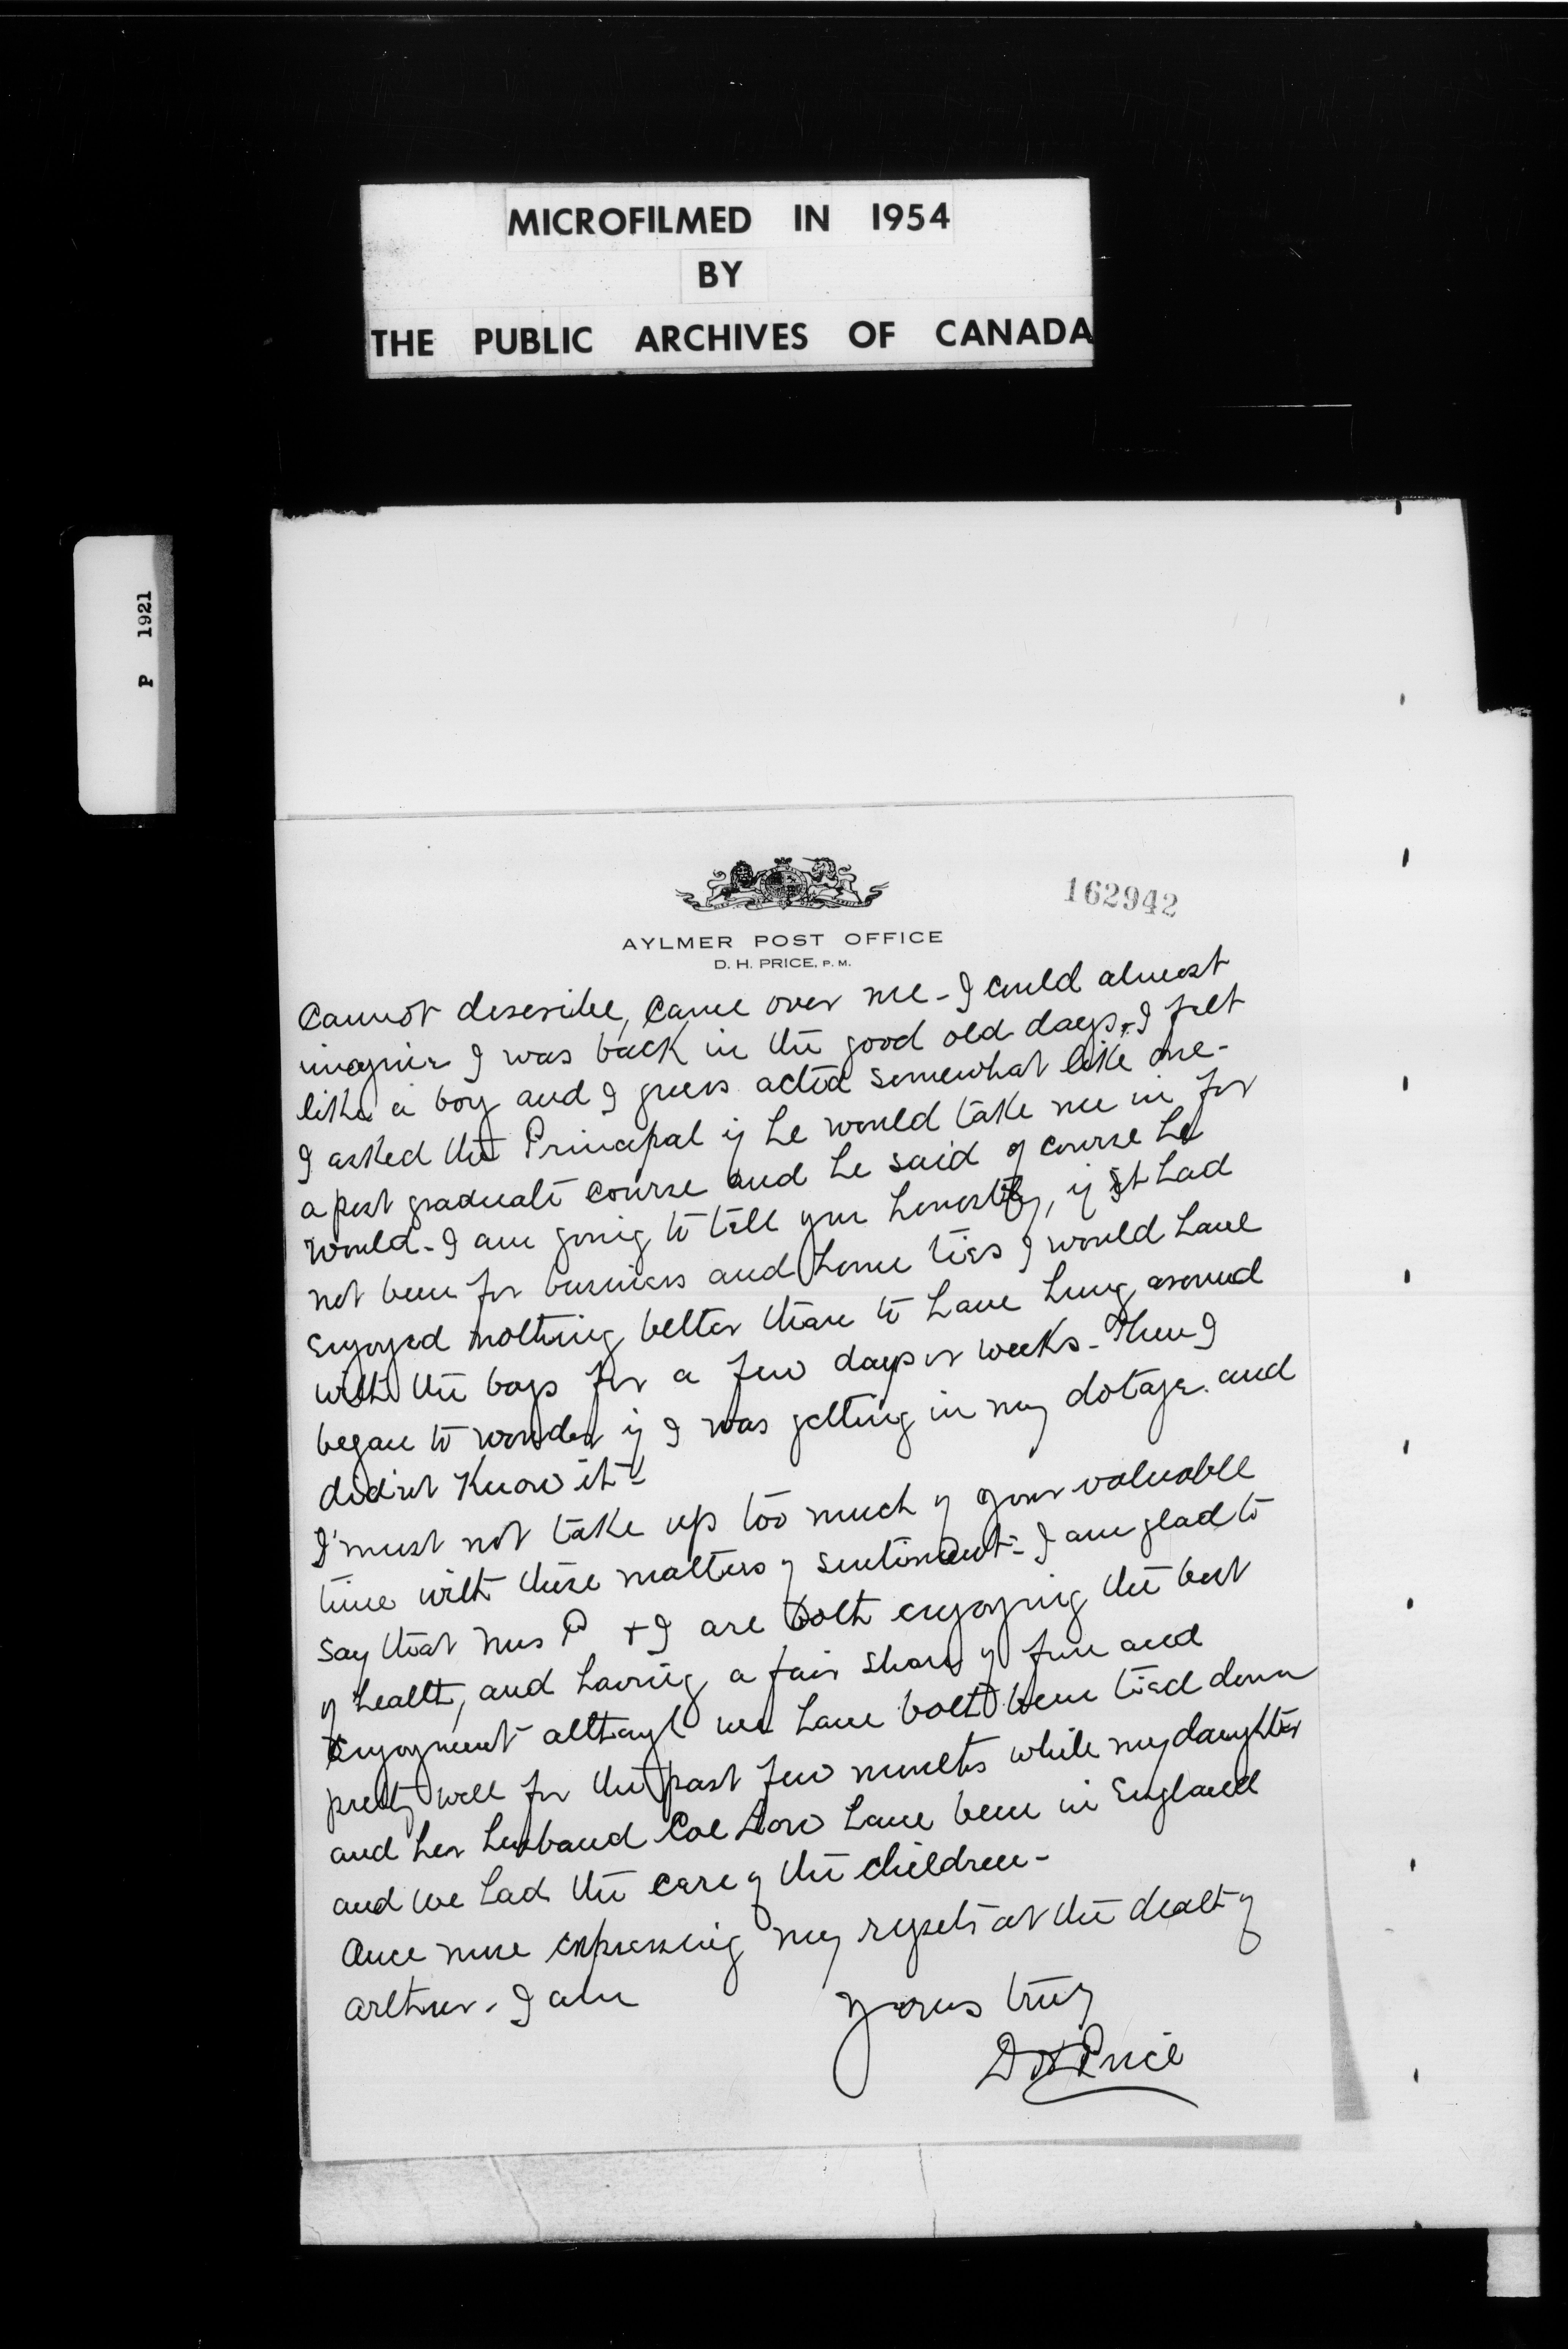 MICROFILMED IN 1954
BY
THE PUBLIC ARCHIVES OF CANADA
P 1921
162942
AYLMER POST OFFICE
D. H. PRICE, P. M.
cannot describe, came over me - I could almost
imagine I was back in the good old days, I felt
like a boy and I guess acted somewhat like one -
I asked the Principal if he would take me in for
a post graduate course and he said of course he
would - I am going to tell you honestly, if it had
not been for business and home ties I would have
enjoyed nothing better than to have hung around
with the boys for a few days or weeks - Then I
began to wonder if I was getting in my dotage and
didn't know it -
I must not take up too much of your valuable
time with these matters of sentiment - I am glad to
say that Mrs P + I are both enjoying the best
of health, and having a fair share of fun and
enjoyment although we have both been tied down
pretty well for the past few months while my daughter
and her husband Col have been in England
and we had the care of the children -
Once more expressing my regrets at the death of
Arthur - I am
Yours truly
D H Price